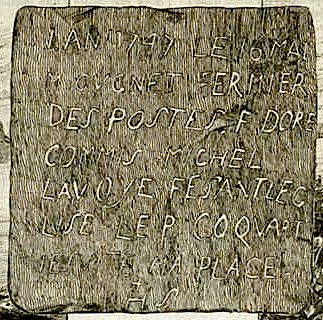 LAN 1747 LE 16 MAI
M CUGNET FERMIER
DES POSTES F DORE
COMMIS MICHEL
LAVOYE FESANT LEG
LISE LE P COQUART
JESUITE MA PLACE.
IHS